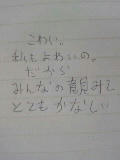 こわい。
私もよわいの。
だから
みんなの意見みて
とてもかなしい